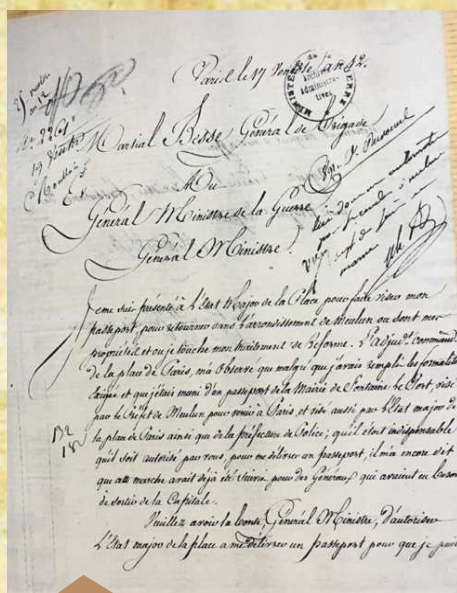 Paris le 17 Vend.re an 12.
MINISTERE DE LA GUERRE
Archives
Administra-
tives
Martial Besse Général de Brigade
Au
Général Ministre de la Guerre
Général Ministre.
Je me suis présenté à l'Etat Major de la Place pour faire viser mon
passeport, pour retourner dans l'arrondissement de Meulun ou sont mes
propriétés et ou je touche mon traitement de Reforme. L'adjud.t command.t
de la place de Paris, m'a observé que malgré que j'avais rempli les formalités
et que j'étais muni d'un passeport de la Mairie de Fontaine le Port, visé
par le Préfet de Meulun pour venir à Paris, et visé aussi par l'Etat major de
la place de Paris ainsi que de la préfecture de Police; qu'il étoit indispensable
qu'il soit autorisé par vous, pour me délivrer un passeport, il m'a encore dit
que cette marche avait déjà été suivie pour des Généraux qui avaient eu besoin
de sortir de la Capitale.
Veuillez avoir la bonté, Général Ministre, d'autoriser
L'Etat major de la place a me délivrer un passeport pour que je puis